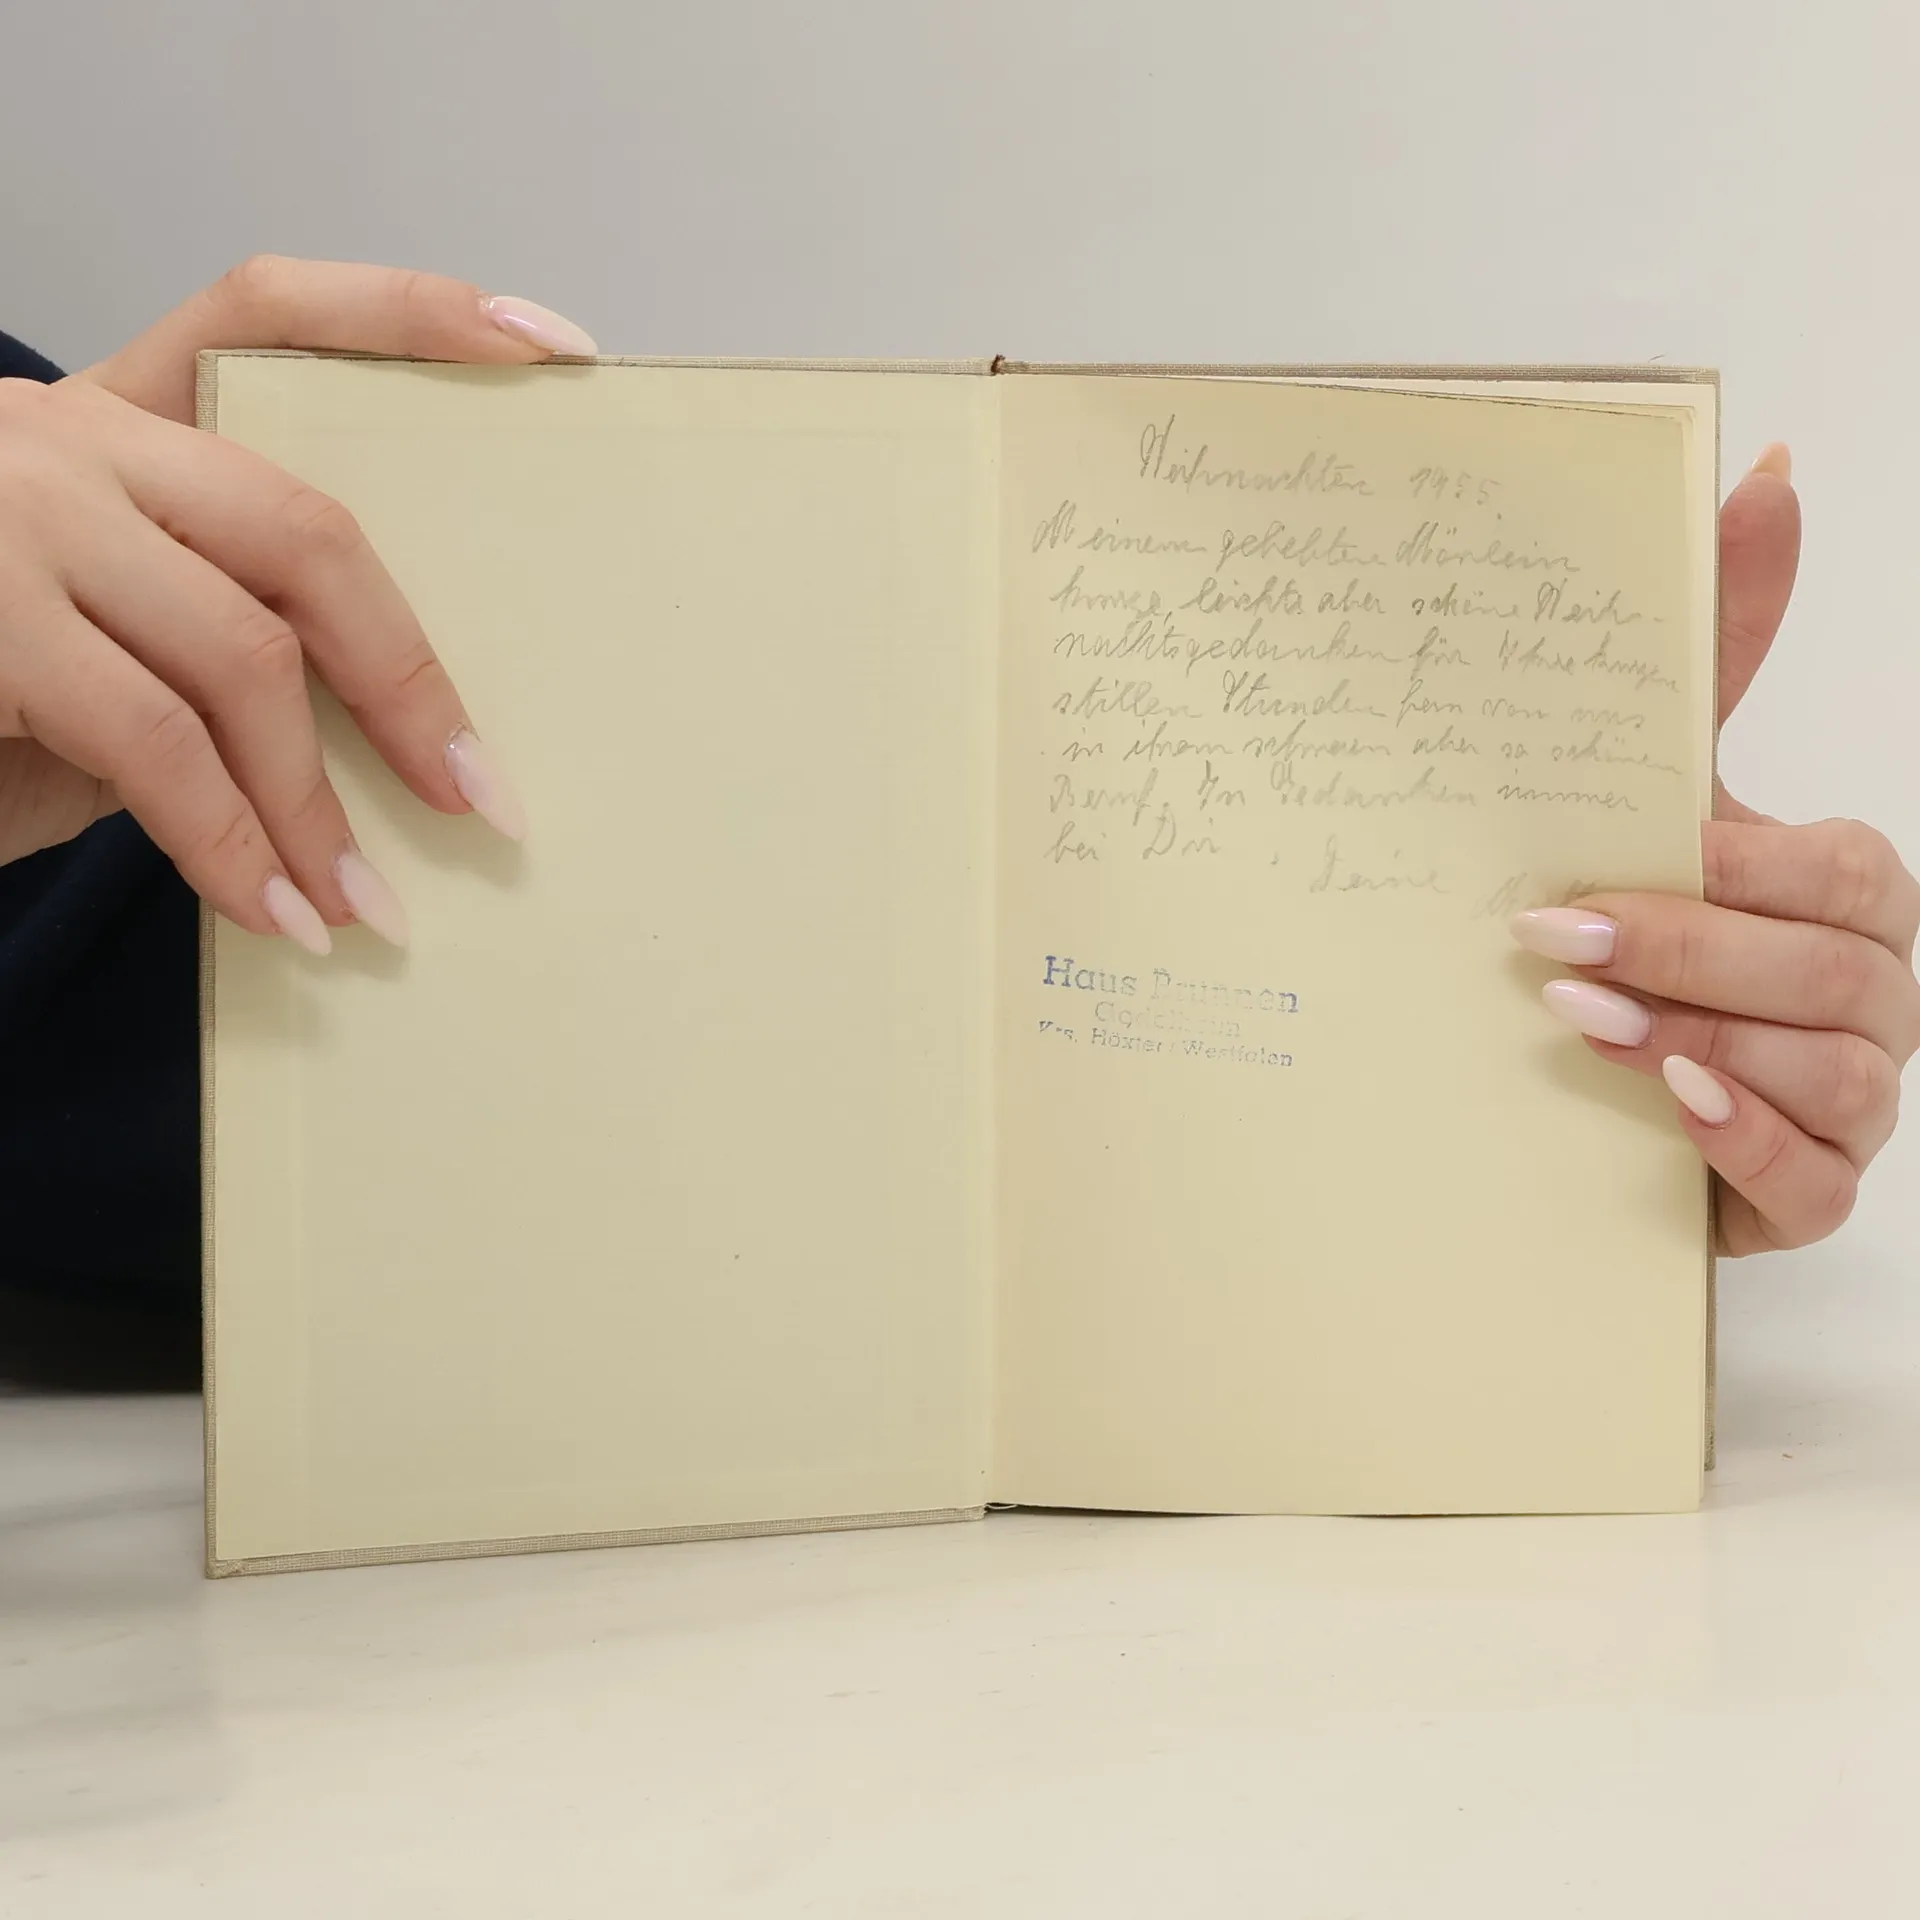 Weihnachten 1955.
Meinem geliebten
kurze, leichte aber schöne Weih-
nachtsgedanken für Ihre kurzen
stillen Stunden fern von uns
in ihrem schweren aber so schönen
Beruf. In Gedanken immer
bei Dir, Deine
Haus Brunnen
Godelheim
Krs. Höxter/Westfalen